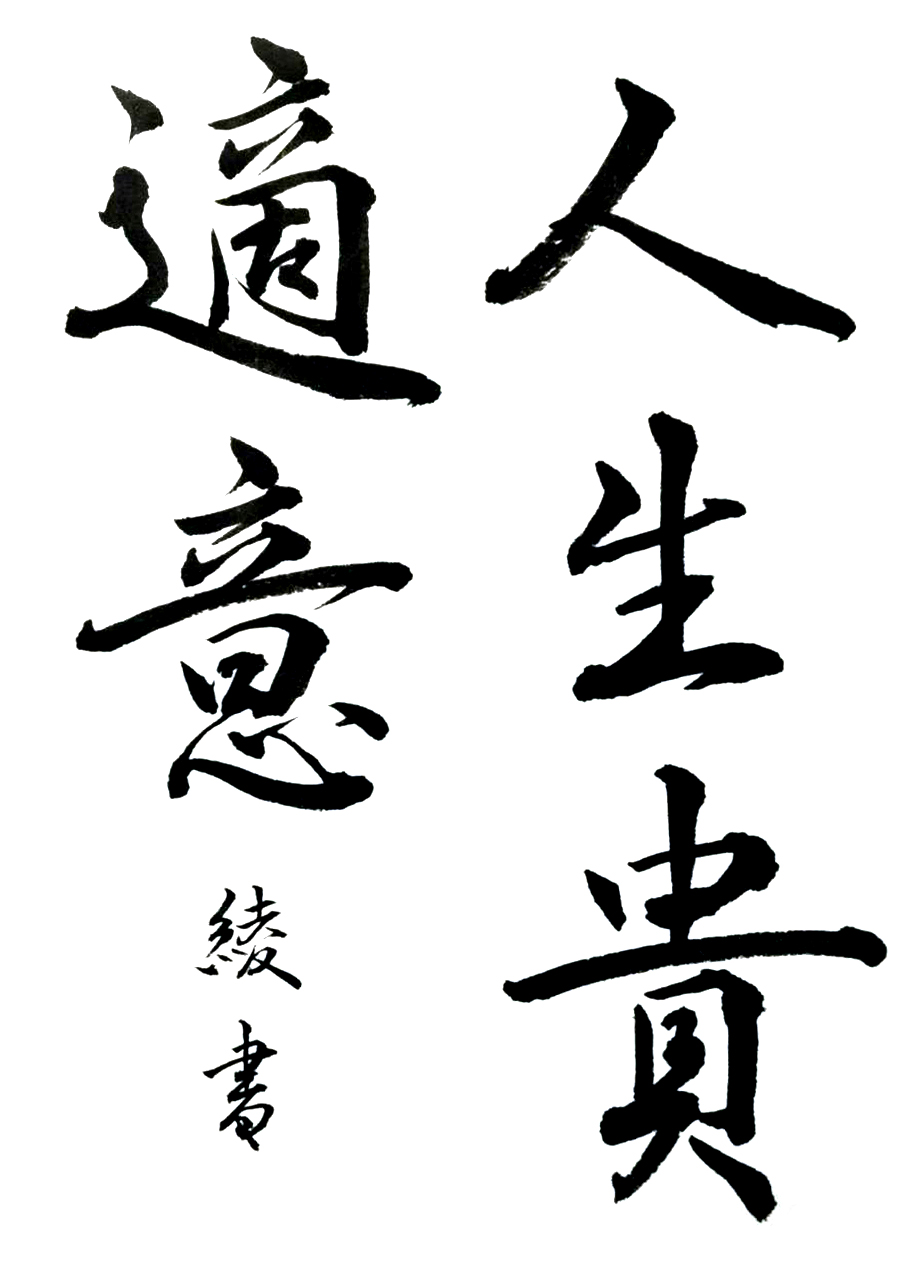 人生貴
適意
綾書